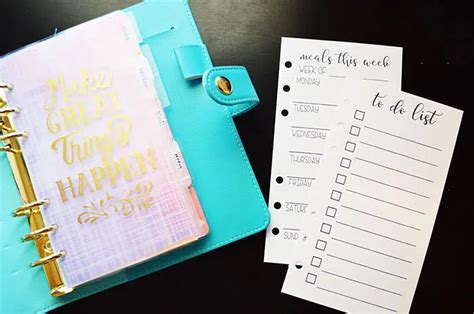 Make
GREAT
Things
HAPPEN
meals this week
WEEK OF
MONDAY
TUESDAY
WEDNESDAY
THURSDAY
FRIDAY
SATUR
SUND
to do list